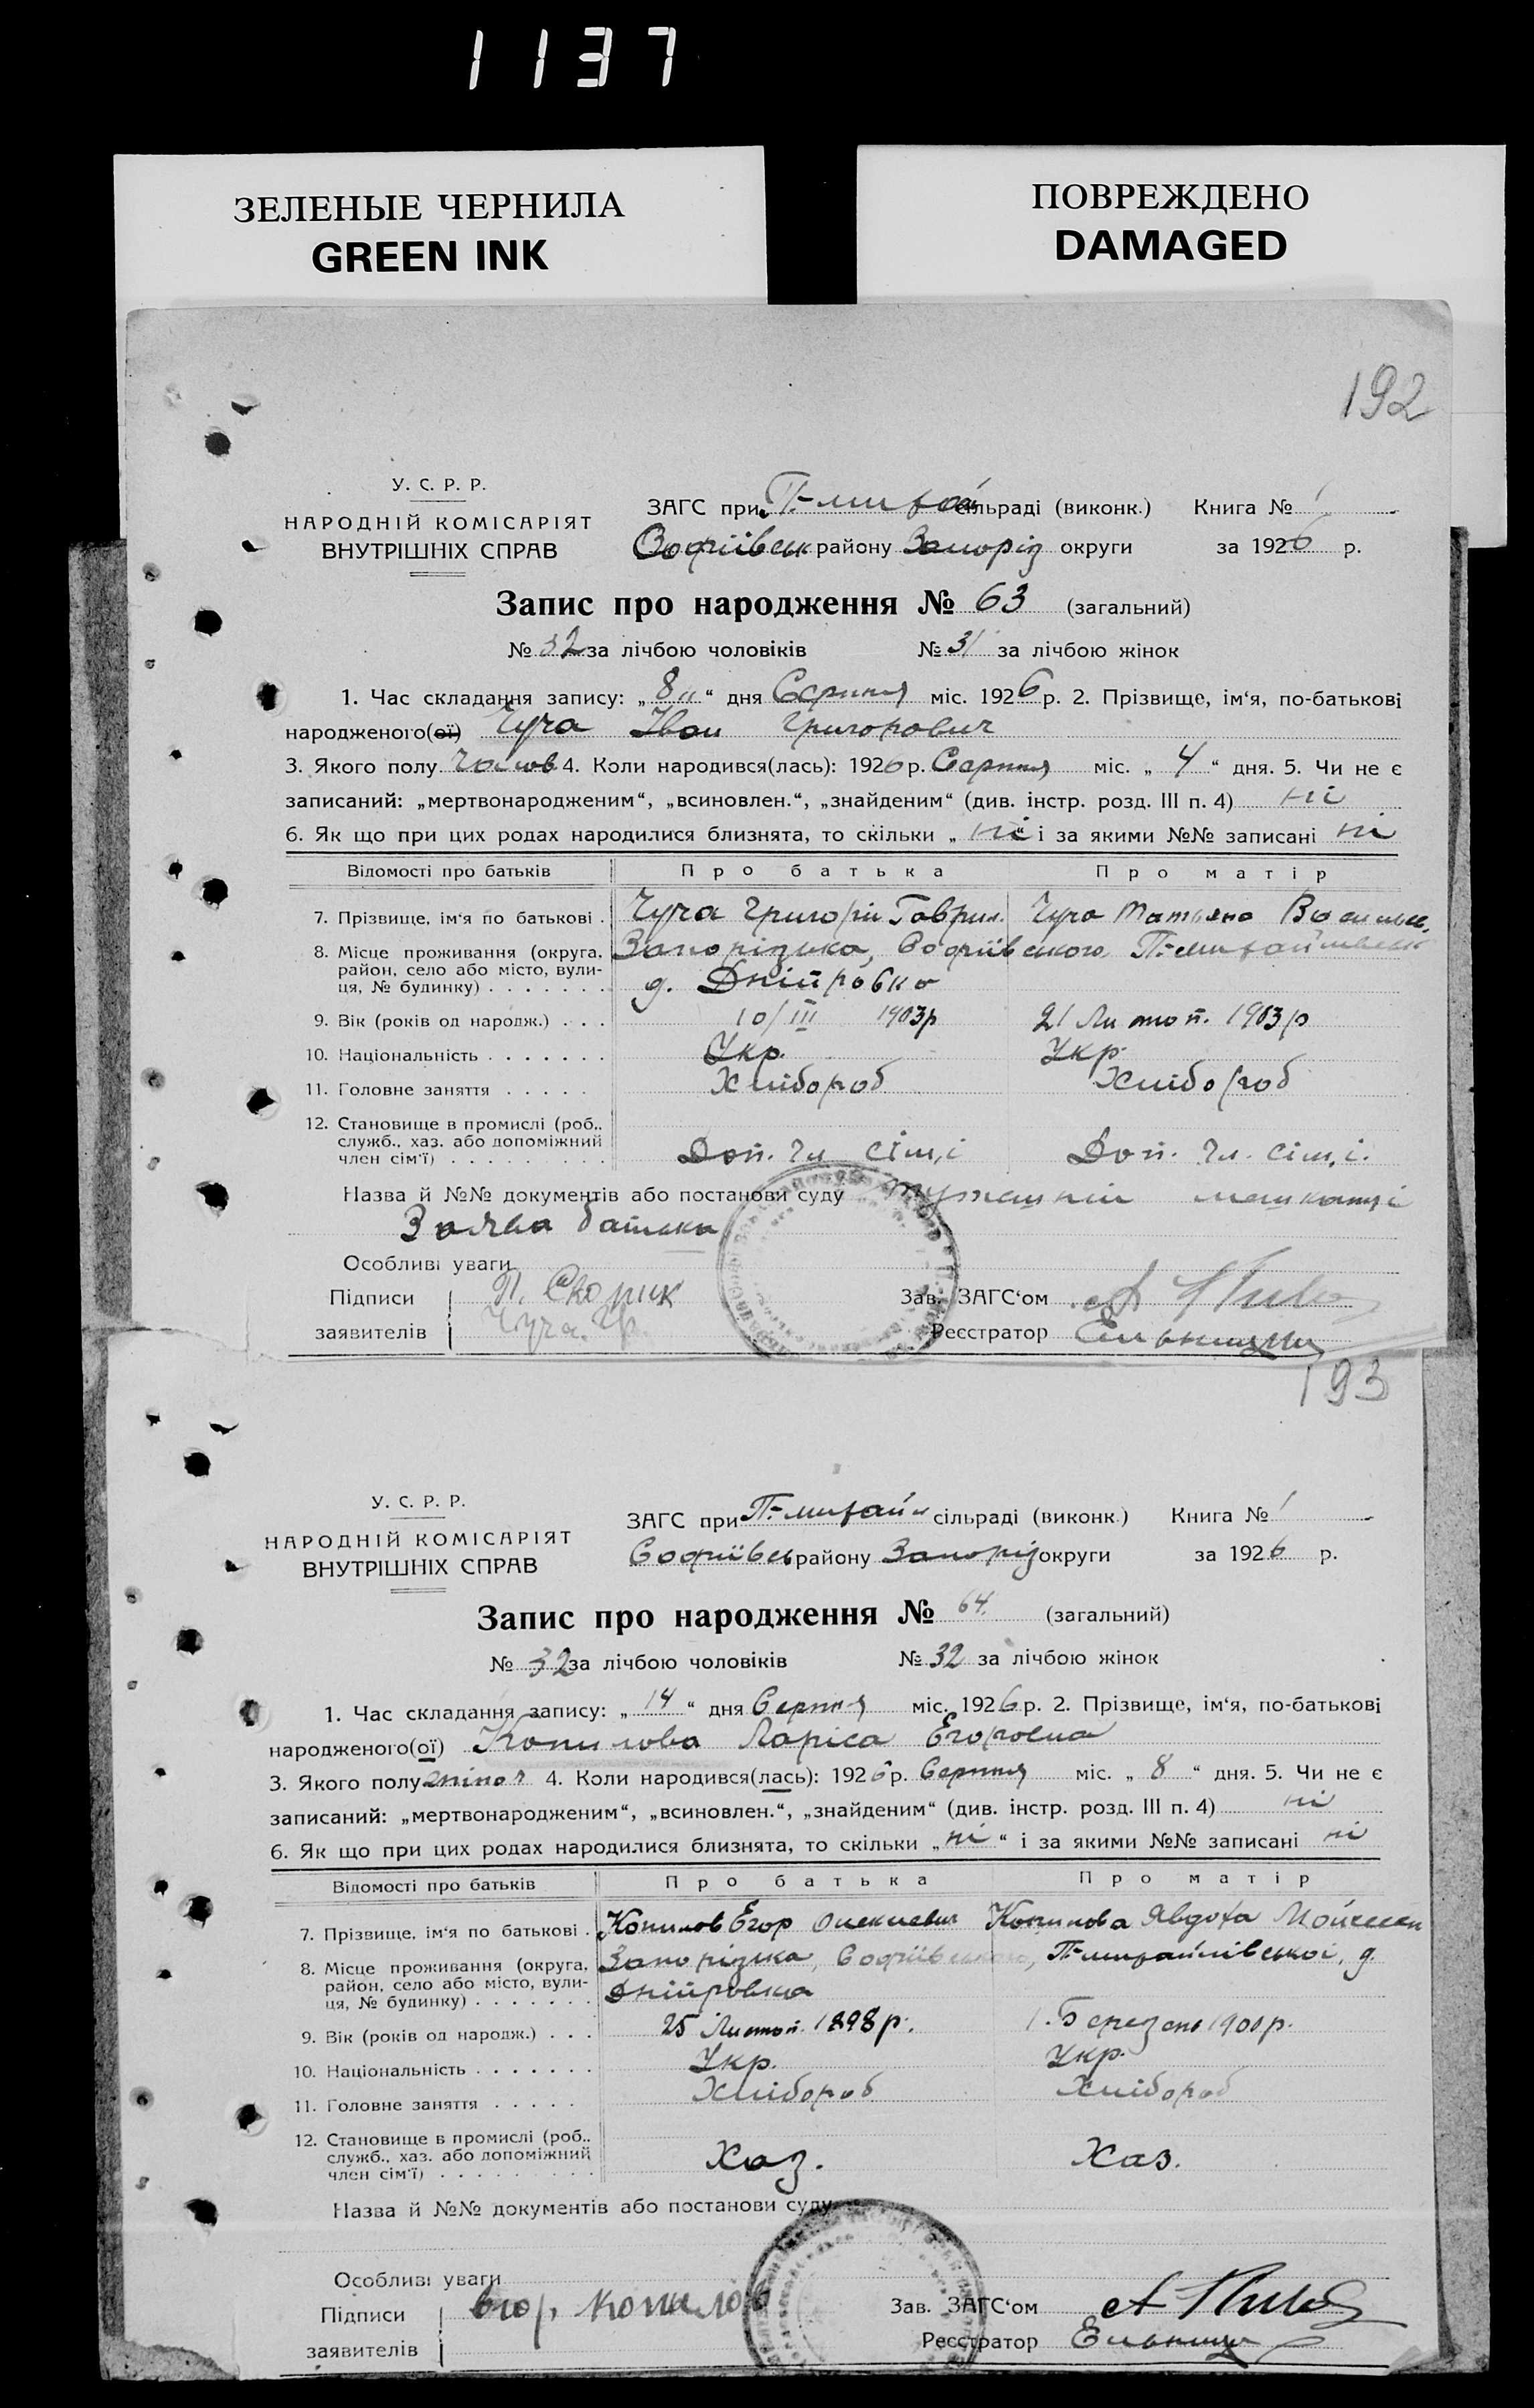 1137
ЗЕЛЕНЫЕ ЧЕРНИЛА
GREEN INK
ПОВРЕЖДЕНО
DAMAGED
192
У. С. Р. Р.
НАРОДНІЙ КОМІСАРІЯТ
ВНУТРІШНІХ СПРАВ
ЗАГС при сільраді (виконк.) Книга № 1
Софіївськ району Запоріз округи за 1926 р.
Запис про народження № 63 (загальний)
№ 32 за лічбою чоловіків № 31 за лічбою жінок
1. Час складання запису: „ 8 “ дня Серпня міс. 1926 р. 2. Прізвище, ім‘я, по-батькові
народженого(ої) Чуча Іван Григорович
3. Якого полу Чолов 4. Коли народився(лась): 1926 р. Серпня міс. „ 4 “ дня. 5. Чи не є
записаний: „мертвонародженим“, „всиновлен.“, „знайденим“ (див. інстр. розд. III п. 4) ні
6. Як що при цих родах народилися близнята, то скільки „ ні “ і за якими №№ записані ні
Відомості про батьків Про батька Про матір
7. Прізвище, ім‘я по батькові . Чуча Григорій Гаврил. Чуча Татьяна Васильев.
8. Місце проживання (округа, Запорізька, Софіївського,
район, село або місто, вули-
ця, № будинку) . . . . . . . д. Дніпровка
9. Вік (років од народж.) . . . 10/III 1903р 21 Листоп. 1903р
10. Національність . . . . . . . Укр. Укр.
11. Головне заняття . . . . . Хлібороб Хлібороб
12. Становище в промислі (роб..
служб., хаз. або допоміжний
член сім‘ї) . . . . . . . . . Доп. Чл. сім,ї Доп. Чл. сім.ї.
Назва й №№ документів або постанови суду
Заява батька
Особливі уваги
Підписи П. Скорик Зав. ЗАГС‘ом
заявителів Чуча. Гр. Реєстратор
193
У. С. Р. Р.
НАРОДНІЙ КОМІСАРІЯТ
ВНУТРІШНІХ СПРАВ
ЗАГС при сільраді (виконк.) Книга № 1
Софіївськ району Запоріз округи за 1926 р.
Запис про народження № 64. (загальний)
№ 32 за лічбою чоловіків № 32 за лічбою жінок
1. Час складання запису: „ 14 “ дня Серпня міс. 1926 р. 2. Прізвище, ім‘я, по-батькові
народженого(ої) Копилова Ларіса Егоровна
3. Якого полу жіноч 4. Коли народився(лась): 1926 р. Серпня міс. „ 8 “ дня. 5. Чи не є
записаний: „мертвонародженим“, „всиновлен.“, „знайденим“ (див. інстр. розд. III п. 4) ні
6. Як що при цих родах народилися близнята, то скільки „ ні “ і за якими №№ записані ні
Відомості про батьків Про батька Про матір
7. Прізвище, ім‘я по батькові . Копилов Егор Копилова Явдоха
8. Місце проживання (округа, Запорізька, Софіївського, П-михайлівської, д.
район, село або місто, вули-
ця, № будинку) . . . . . . . Дніпровка
9. Вік (років од народж.) . . . 25 Листоп. 1898р. 1. Березня 1900р.
10. Національність . . . . . . . Укр. Укр.
11. Головне заняття . . . . . Хлібороб Хлібороб
12. Становище в промислі (роб..
служб., хаз. або допоміжний
член сім‘ї) . . . . . . . . . Хаз. Хаз.
Назва й №№ документів або постанови суду
Особливі уваги
Підписи Егор. Копилов Зав. ЗАГС‘ом
заявителів Реєстратор